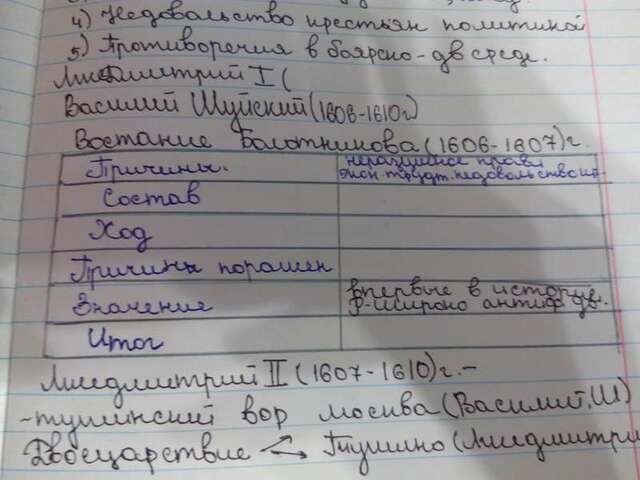 4) Недовольство крестьян политикой
5) Противоречия в боярско-дв среде.
Лжедмитрий I (
Василий Шуйский (1606-1610г)
Востание Болотникова (1606-1607)г.
Причины. неразумное правл
экон. трудт. недовольство кр-
Состав
Ход
Причины поражен
Значение впервые в истории
Р-широко антиф дв.
Итог
Лжедмитрий II (1607-1610)г.-
-тушинский вор Москва (Василий.Ш)
Двоецарствие Тушино (Лжедмитри